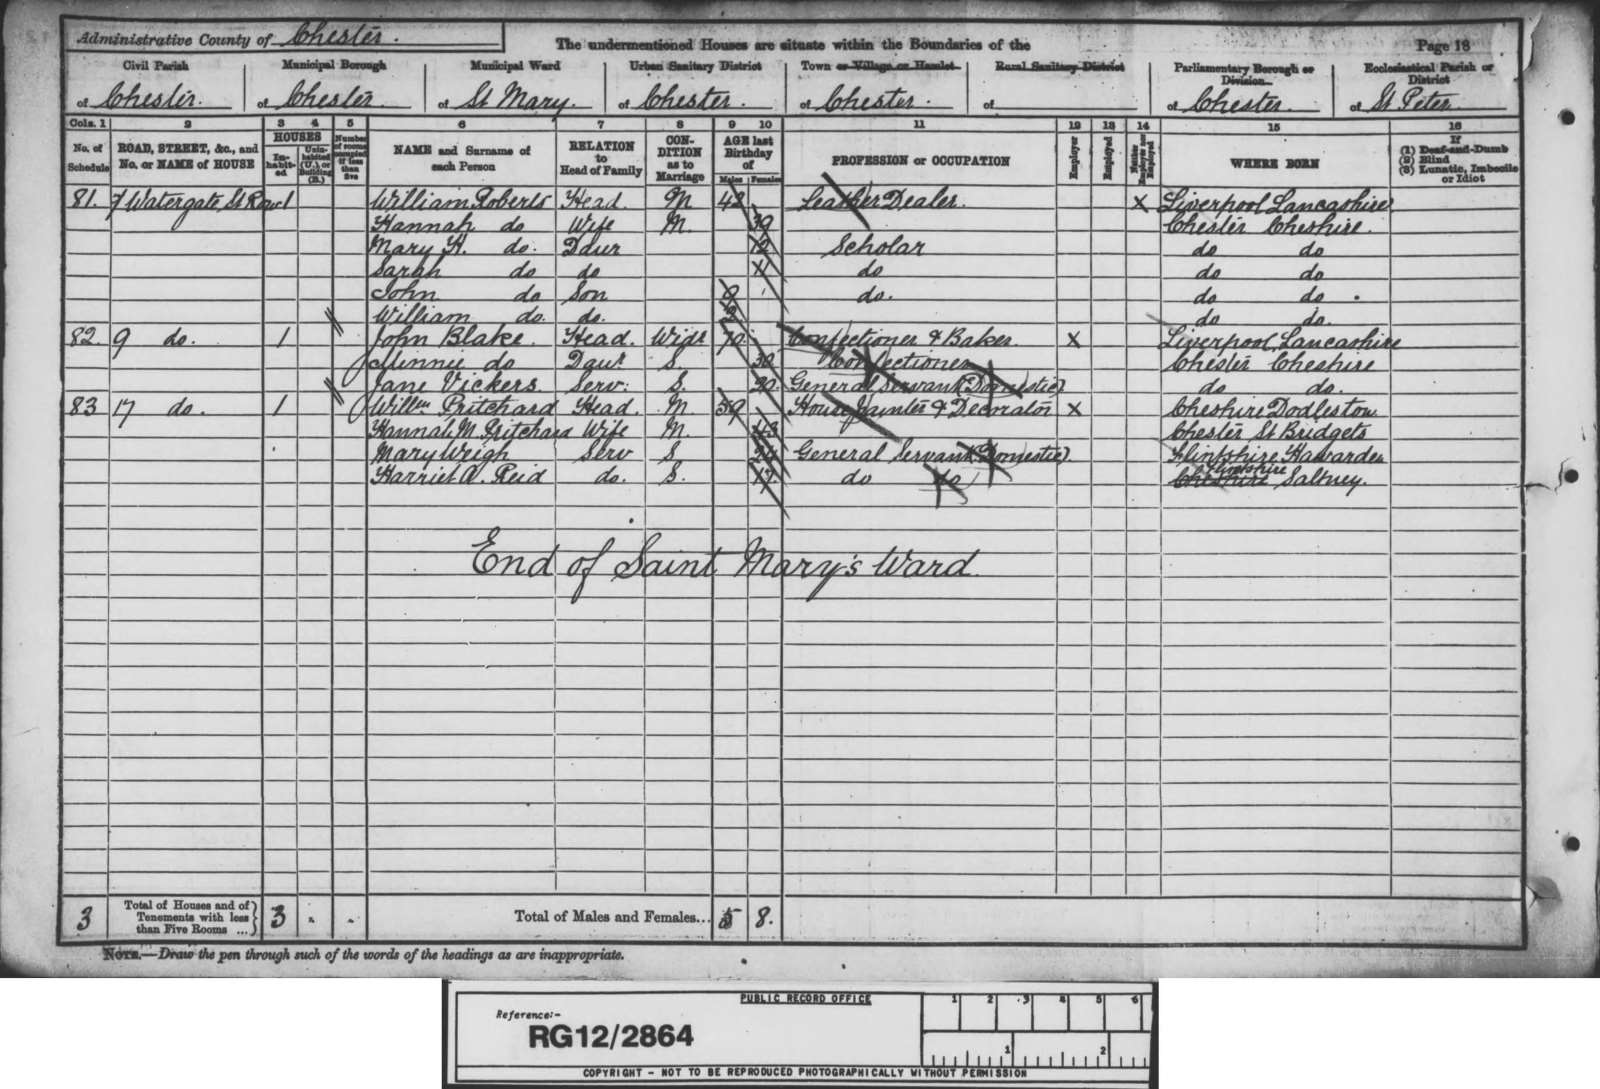 Administrative County of Chester.
The undermentioned Houses are situate within the Boundaries of the
Page 18
Civil Parish of Chester.
Municipal Borough of Chester.
Municipal Ward of St Mary.
Urban Sanitary District of Chester.
Town or Village or Hamlet of Chester.
Rural Sanitary District of
Parliamentary Borough or Division of Chester.
Ecclesiastical Parish or District of St Peter.
Cols. 1 2 3 4 5 6 7 8 9 10 11 12 13 14 15 16
No. of Schedule
ROAD, STREET, &c., and No. or NAME of HOUSE
HOUSES
Inhabited
Uninhabited (U.) or Building (B.)
Number of rooms occupied if less than five
NAME and Surname of each Person
RELATION to Head of Family
CONDITION as to Marriage
AGE last Birthday of
Males Females
PROFESSION or OCCUPATION
Employer
Employed
Neither Employer nor Employed
WHERE BORN
If
(1) Deaf-and-Dumb
(2) Blind
(3) Lunatic, Imbecile or Idiot
81. 7 Watergate St Row 1 William Roberts Head. M 42 Leather Dealer. X Liverpool Lancashire
Hannah do Wife M. 39 Chester Cheshire.
Mary H. do. Daur 12 Scholar do do
Sarah do do 11 do do do
John do Son 9 do. do do
William do. do. do do.
82. 9 do. 1 John Blake. Head. Widr 70. Confectioner & Baker. X Liverpool, Lancashire
Minnie do Daur S. 30 Confectioner Chester Cheshire
Jane Vickers. Serv: S. 20. General Servant (Domestic) do do.
83 17 do. 1 Willm Pritchard Head. M. 59 House Painter & Decorator X Cheshire Dodleston
Hannah M. Pritchard Wife M. 43 Chester St Bridgets
Mary Weigh Serv S General Servant (Domestic). Flintshire Hawarden
Harriet A. Reid do. S. 17. do do Cheshire Flintshire Saltney.
End of Saint Mary's Ward.
3 Total of Houses and of Tenements with less than Five Rooms ... 3 - - Total of Males and Females... 5 8.
NOTE.—Draw the pen through such of the words of the headings as are inappropriate.
PUBLIC RECORD OFFICE
1 2 3 4 5 6
Reference:-
RG12/2864
1 2
COPYRIGHT - NOT TO BE REPRODUCED PHOTOGRAPHICALLY WITHOUT PERMISSION